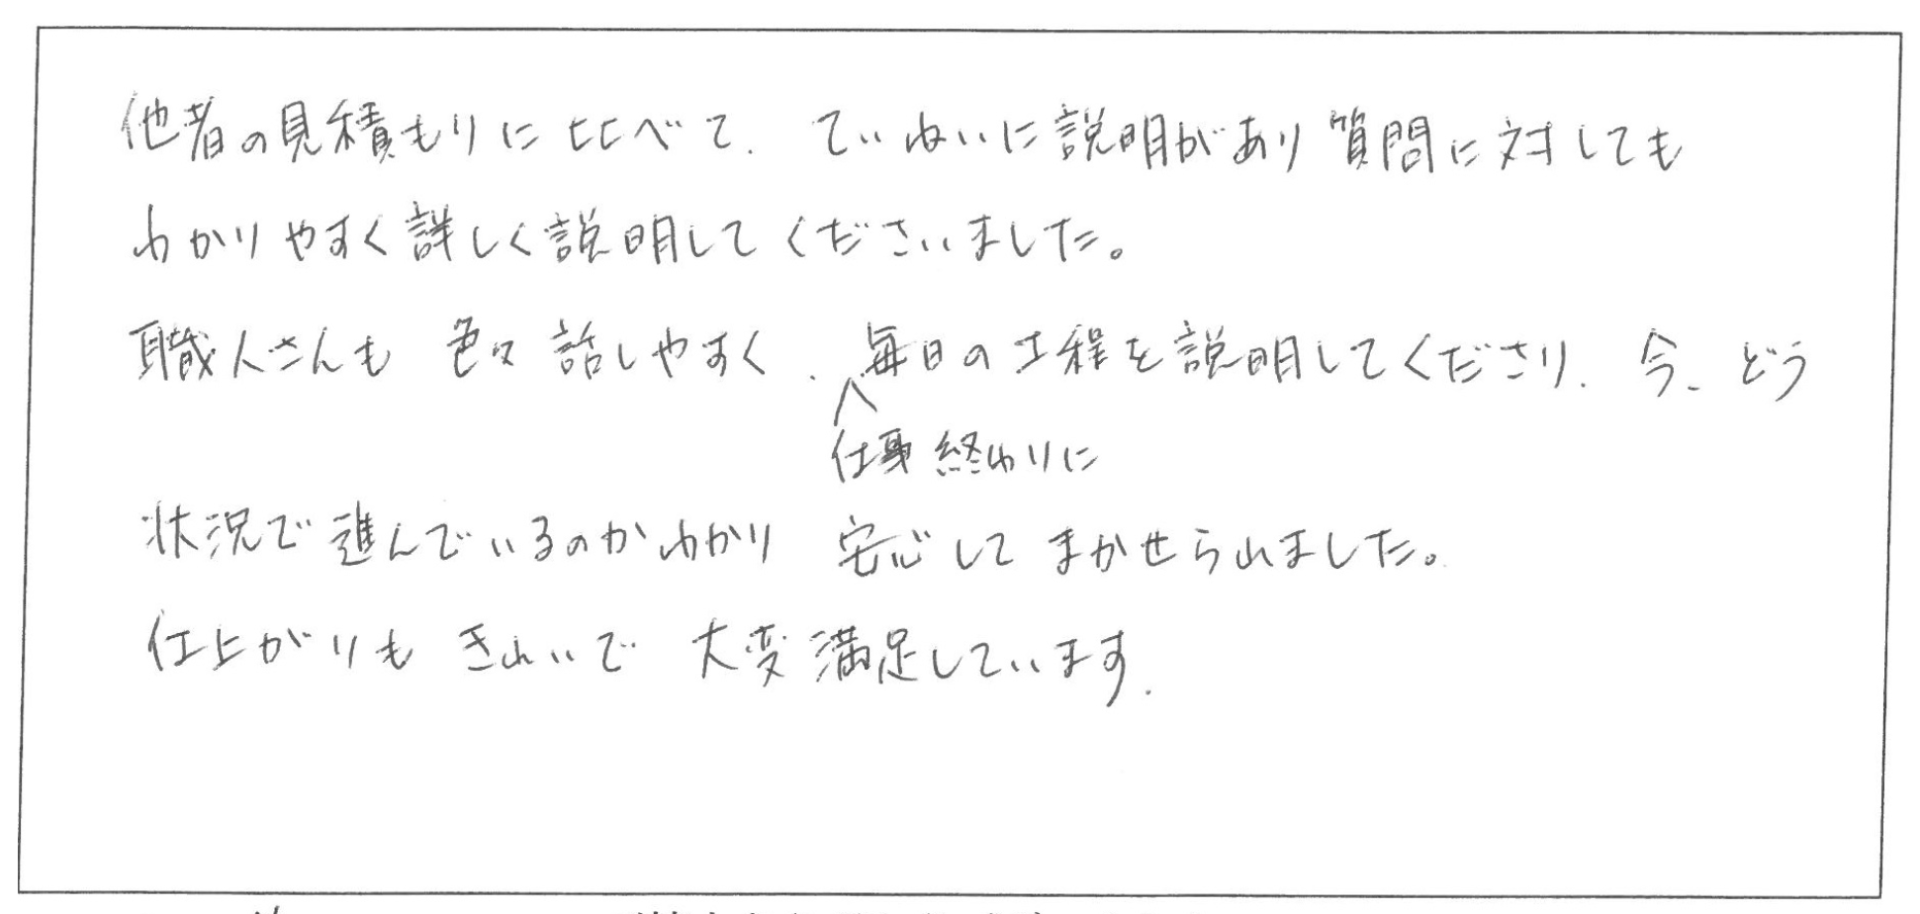 他者の見積もりに比べて、ていねいに説明があり質問に対しても
わかりやすく詳しく説明してくださいました。
職人さんも 色々話しやすく、毎日の工程を説明してくださり、今、どう
仕事終わりに
状況で進んでいるのかわかり 安心してまかせられました。
仕上がりも きれいで 大変満足しています。